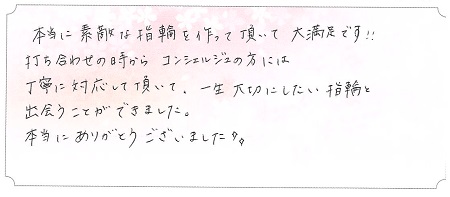 本当に素敵な指輪を作って頂いて 大満足です!!
打ち合わせの時から コンシェルジュの方には
丁寧に対応して頂いて、一生大切にしたい指輪と
出会うことができました。
本当にありがとうございました